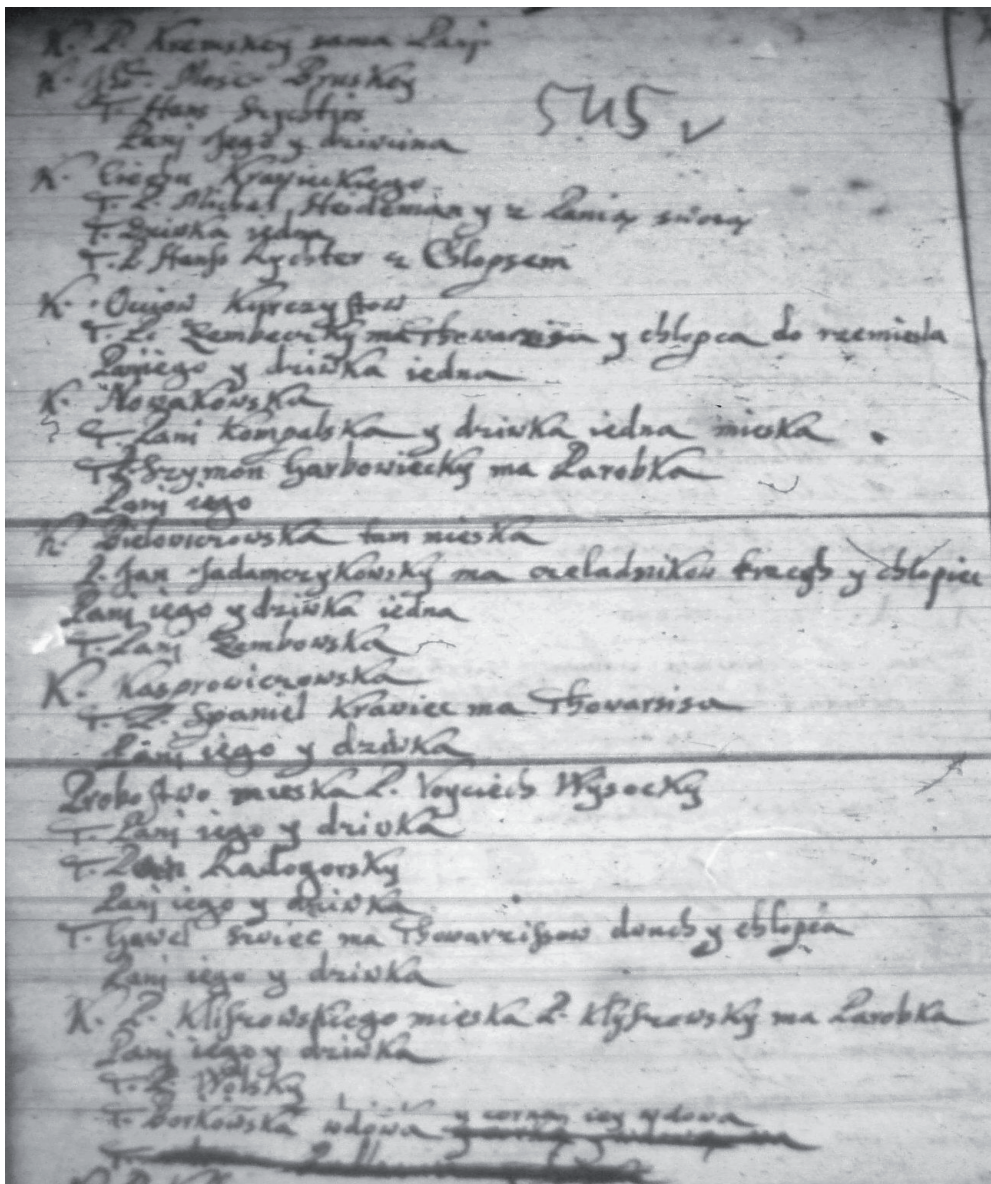 K. P. Kremskey sama Panj
K. Mosc Pruskey
T. Hans Szychtyn
Panj Jego y dziwcina
545 v
K. Ciegu Krayuckiego
T. P. Michel Heideman y z Panią swoią
T. Dziwka iedna
T. P. Hanss Rychter z Chlopsem
K. Ouiow Kyrczystow
T. P. Zembeczky ma Thowarzisza y chlopca do rzemiesla
Pani iego y dziwka iedna
K. Nowakowska
T. Pani Kompalska y dziwka iedna mieska
T. P. Szymon Garbowiecky ma Parobka
Panj iego
K. Bielowiczowska tam mieska
P. Jan Jadamczykowsky ma czeladnikow trzech y chlopiec
Panj iego y dziwka iedna
T. Panj Zembowska
K. Kasprowiczowska
T. P. Spaniel Krawiec ma Thovarsisa
Panj iego y dziwka
Probostwo mieska P. Voyciech Wysocky
T. Panj iego y dziwka
T. Pan Radogorsky
Panj iego y dziwka
T. Gawel Swiec ma Thowarzissow dwuch y chlopca
Panj iego y dziwka
K. P. Klissrowskiego mieska P. Klyssrowsky ma Parobka
Panj iego y dziwka
T. P. Wolsky
T. Borkowska wdowa y corna iey wdowa